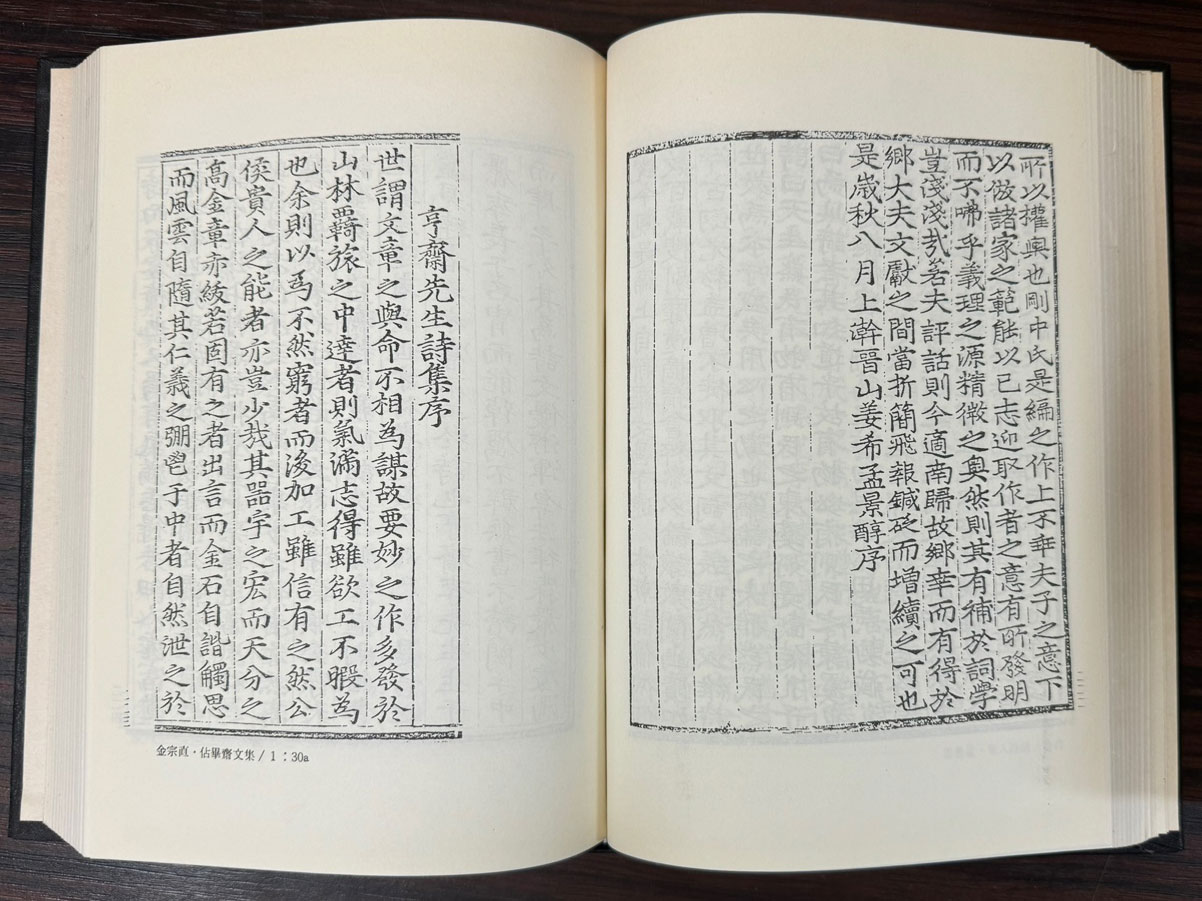 所以權輿也剛中氏是編之作上不幸夫子之意下
以倣諸家之範能以已志迎取作者之意有所發明
而不咈乎義理之源精微之奧然則其有補於詞學
豈淺淺㢤若夫評話則今適南歸故鄉幸而有得於
鄉大夫文獻之間當折簡飛報鍼砭而增續之可也
是歲秋八月上澣晉山姜希孟景醇序
亨齋先生詩集序
世謂文章之與命不相為謀故要妙之作多發於
山林羇旅之中達者則氣滿志得雖欲工不暇為
也余則以爲不然窮者而後加工雖信有之然公
侯貴人之能者亦豈少哉其器宇之宏而天分之
高金章赤綬若固有之者出言而金石自諧觸思
而風雲自隨其仁義之弸鬯于中者自然泄之於
金宗直·佔畢齋文集 / 1 : 30a